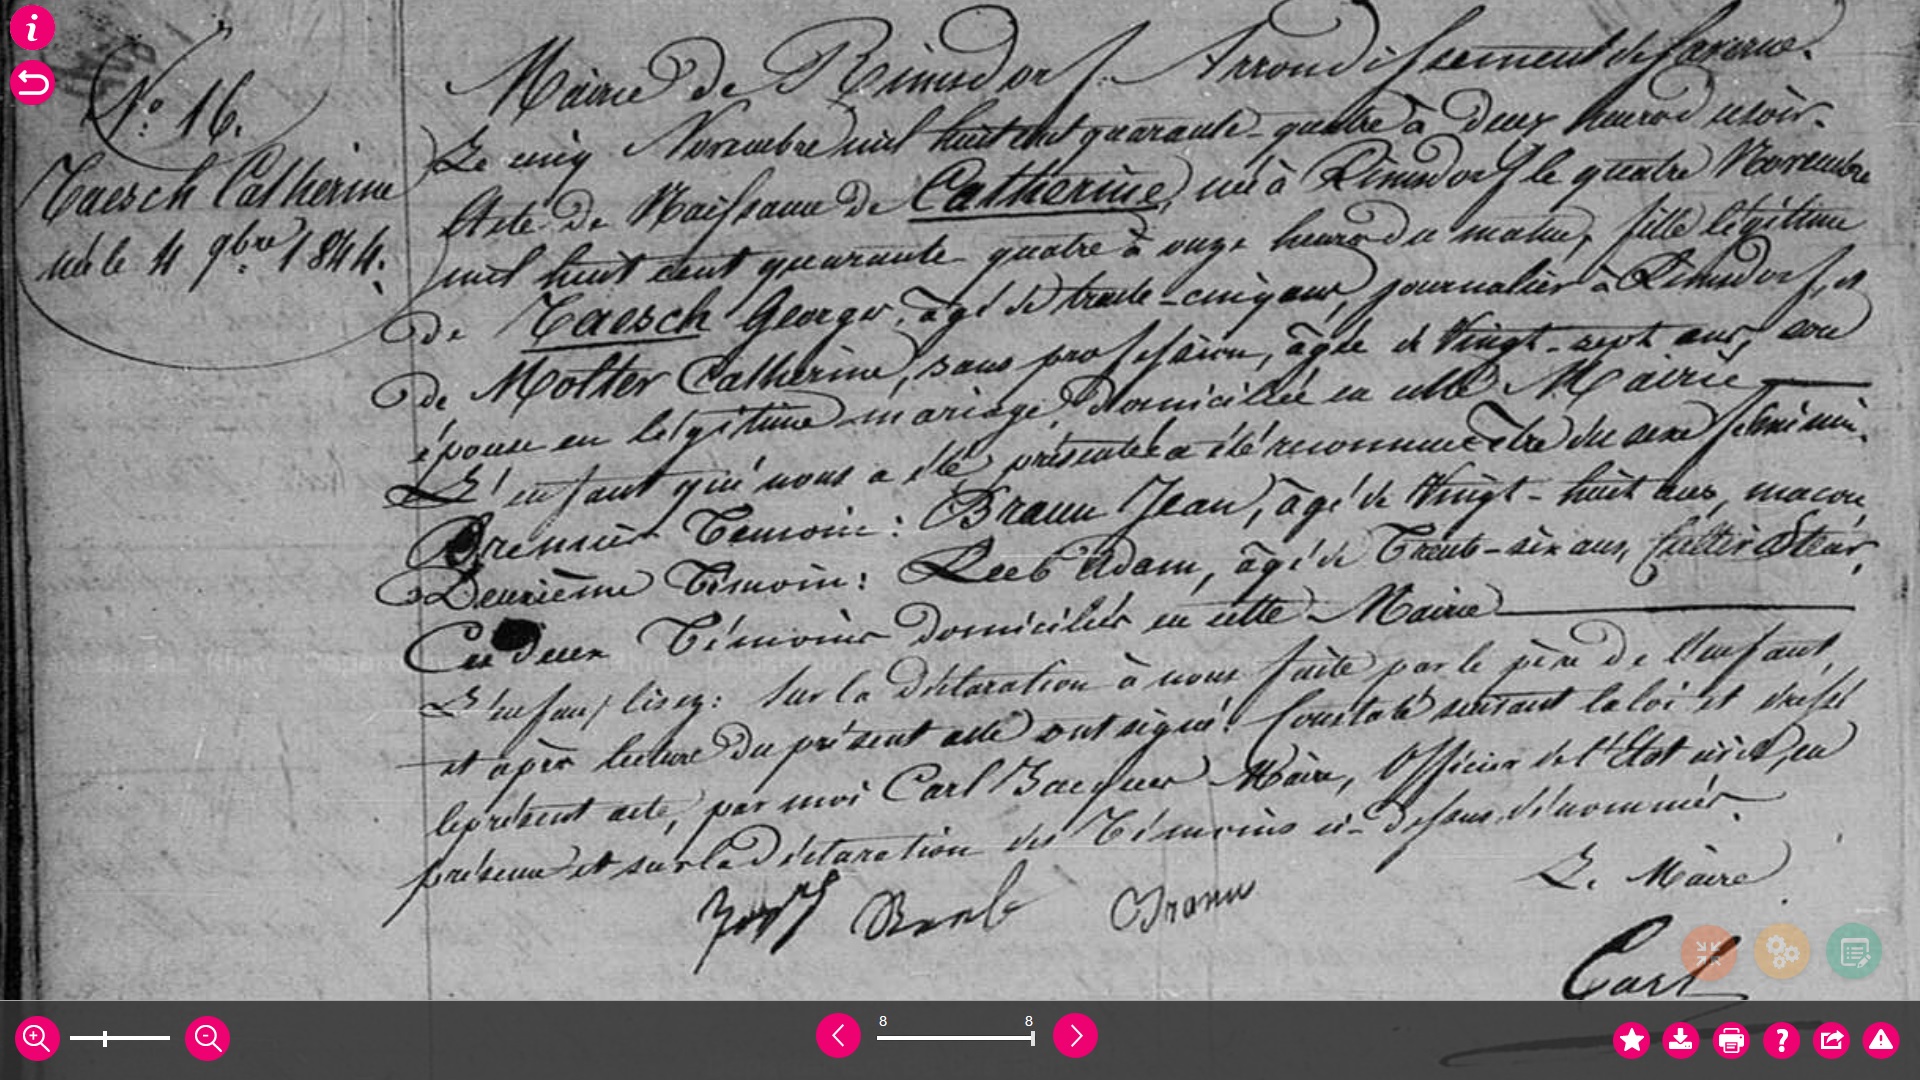 Nº 16.
Taesch Catherine
née le 4 9bre 1844.
Mairie de Rimsdorf. Arrondissement de Saverne.
Le cinq Novembre mil huit cent quarante-quatre à deux heures du soir.
Acte de Naissance de Catherine, née à Rimsdorf le quatre Novembre
mil huit cent quarante quatre à onze heures du matin, fille légitime
de Taesch George, âgé de trente-cinq ans, journalier à Rimsdorf, et
de Molter Catherine, sans profession, âgée de Vingt-sept ans, son
épouse en légitime mariage, domiciliée en cette Mairie
L'enfant qui nous a été présentée a été reconnue être du sexe féminin.
Premier Témoin: Braun Jean, âgé de Vingt-huit ans, maçon,
Deuxième Témoin: Reeb Adam, âgé de Trente-six ans, Cultivateur,
Ces deux Témoins domiciliés en cette Mairie
L'enfant lisez: Sur la déclaration à nous faite par le père de l'enfant,
et après lecture du présent acte ont signé. Constaté suivant la loi et dressé
le présent acte, par moi Carl Jacques Maire, Officier de l'État civil, en
présence et sur la déclaration des Témoins ci-dessus dénommés.
Le Maire
Reeb Braun
Carl
8 8